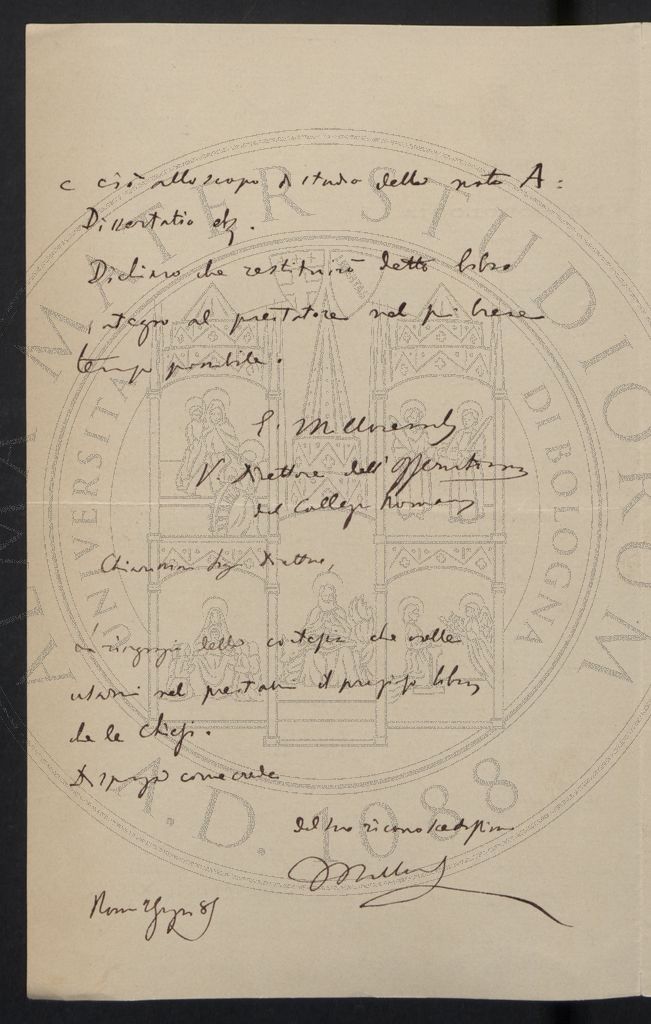 e ciò allo scopo di studio della nota A:
Dissertatio etc.
Dichiaro che restituirò detto libro
integro al prestatore nel più breve
tempo possibile.
E. Millosevich
V. Direttore dell'Osservatorio
del Collegio Romano
Chiarissimo Sig. Direttore,
La ringrazio della cortesia che volle
usarmi nel prestarmi il prezioso libro
che le chiesi.
Mi spiego come crede
del suo riconoscentissimo
EMillosevich
Roma 2 Giugno 85
ALMA MATER STUDIORUM
UNIVERSITA DI BOLOGNA
A.D. 1088